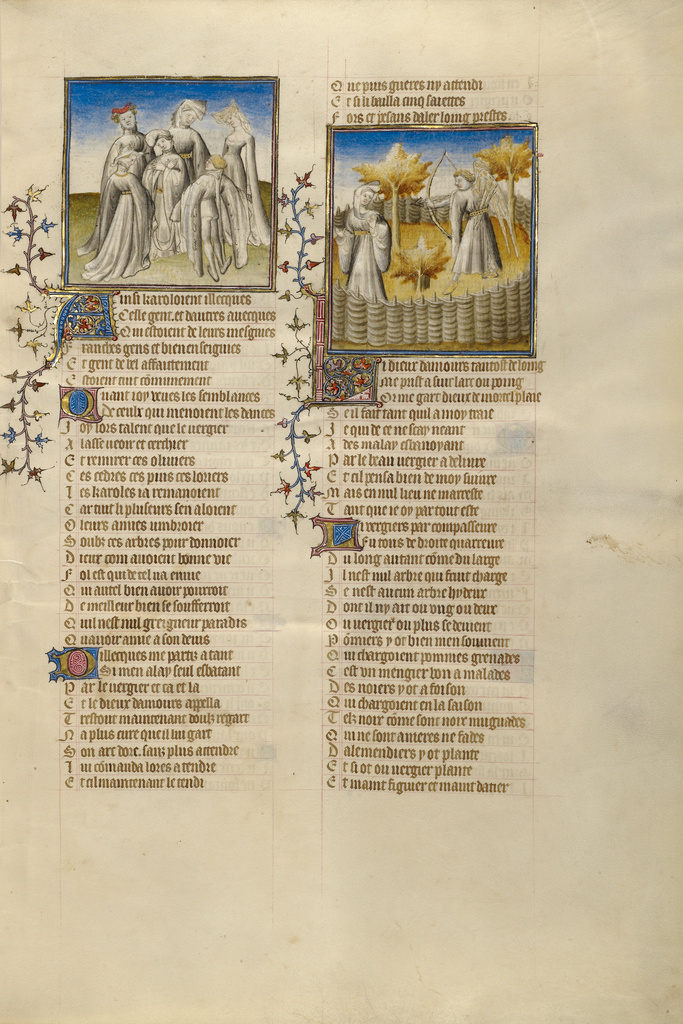 Ainsi karoloient illecques
Ceste gent et dautres auecques
Qui estoient de leurs mesgnies
Franches gens et bien enseignies
Et gent de bel affaitement
Estoient tuit communement
Quant ioy veues les semblances
De ceulx qui menoient les dances
Joy lors talent que le vergier
Alasse veoir et cerchier
Et remirer ces oliuiers
Ces cedres ces pins ces loriers
Les karoles ia remanoient
Car tuit li pluseurs sen aloient
O leurs amies umbroier
Soubz ces arbres pour donnoier
Dieux com auoient bonne vie
Fol est qui de tel na enuie
Qui autel bien auoir pourroit
De meilleur bien se soufferroit
Quil nest nul greigneur paradis
Quauoir amie a son deuis
Dillecques me partis a tant
Si men alay seul esbatant
Par le vergier et ca et la
Et le dieux damours appella
Trestout maintenant doulz regart
Na plus cure que il lui gart
Son arc dore sanz plus attendre
Lui comanda lores a tendre
Et cil maintenant le tendi
Que puis gueres ny attendi
Et si li bailla cinq saiettes
Fors et pesans daler loing prestes
Li dieux damours tantost de loing
Me prist a suir larc ou poing
Or me gart dieux de mortel plaie
Se il fait tant quil a moy traie
Je qui de ce ne scay neant
Ades malay esbanoyant
Par le beau vergier a deliure
Et cil pensa bien de moy suiure
Mais en nul lieu ne marreste
Tant que ie oy par tout este
Li vergiers par compasseure
Fu tous de droite quarreure
Du long autant come du large
Il nest nul arbre qui fruit charge
Se nest aucun arbre hydeux
Dont il ny art ou vng ou deux
Ou vergier ou plus se deuient
Pomiers y ot bien men souuient
Qui chargoient pommes grenades
Cest vn mengier bon a malades
Des noiers y ot a foison
Qui chargoient en la saison
Telz noix come sont noix muguades
Qui ne sont ameres ne fades
Dalemendiers y ot plante
Et si ot ou vergier plante
Et maint figuier et maint datier